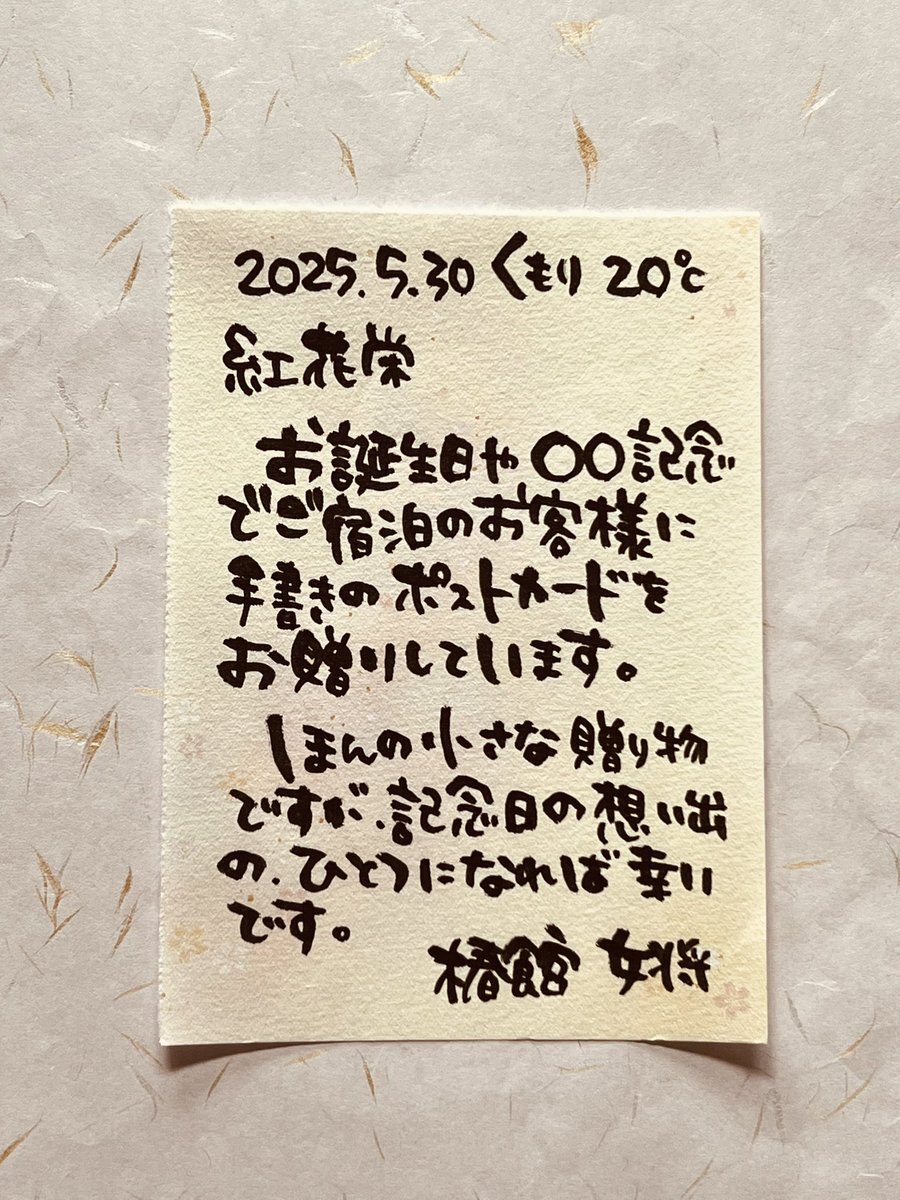 2025.5.30 くもり 20℃
紅花栄
お誕生日や〇〇記念
でご宿泊のお客様に
手書きのポストカードを
お贈りしています。
ほんの小さな贈り物
ですが、記念日の想い出
の、ひとつになれば幸い
です。
椿館 女将